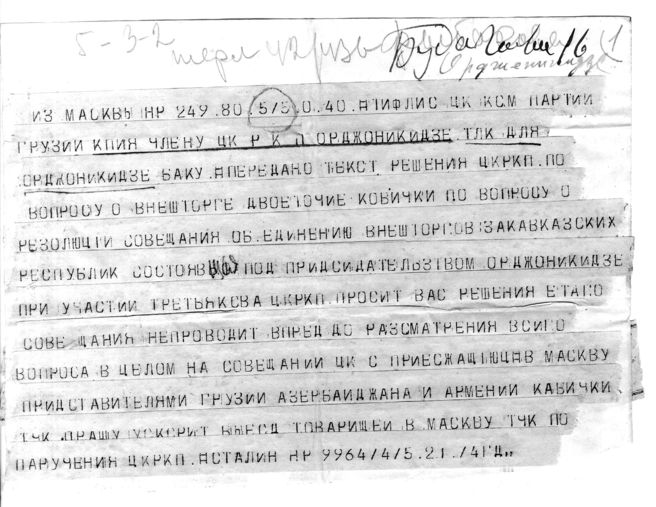 5-3-2
ИЗ МАСКВЫ НР 249.80 5/5.0.40. АТИФЛИС ЦК КСМ ПАРТИИ
ГРУЗИИ КПИЯ ЧЛЕНУ ЦК Р К П ОРДЖОНИКИДЗЕ ТЛК ДЛЯ
ОРДЖОНИКИДЗЕ БАКУ. ПЕРЕДАНО ТЕКСТ РЕШЕНИЯ ЦКРКП. ПО
ВОПРОСУ О ВНЕШТОРГЕ ДВОЕТОЧИЕ КОВИЧКИ ПО ВОПРОСУ О
РЕЗОЛЮЦГИ СОВЕЩАНИЯ ОБ.ЕДИНЕНИЮ ВНЕШТОРГОВ ЗАКАВКАЗСКИХ
РЕСПУБЛИК ПОД ПРИДСИДАТЕЛЬЗТВОМ ОРДЖОНИКИДЗЕ
ПРИ УЧАСТИИ ТРЕТЬЯКСВА ЦКРКП.ПРОСИТ ВАС РЕШЕНИЯ ЕТАГО
СОВЕ ЩАНИЯ НЕПРОВОДИТ ВПРЕД ДО РАЗСМАТРЕНИЯ ВСИГО
ВОПРОСА В ЦЕЛОМ НА СОВЕЩАНИИ ЦК С МАСКВУ
ПРИДСТАВИТЕЛЯМИ ГРУЗИИ АЗЕРБАИДЖАНА И АРМЕНИИ КАВИЧКИ
ТЧК ПРАШУ УСКОРИТ ВЫЕСД ТОВАРИЩЕЙ В МАСКВУ ТЧК ПО
ПАРУЧЕНИЯ ЦКРКП. АСТАЛИН НР 9964/4/5.21./4ГД,,